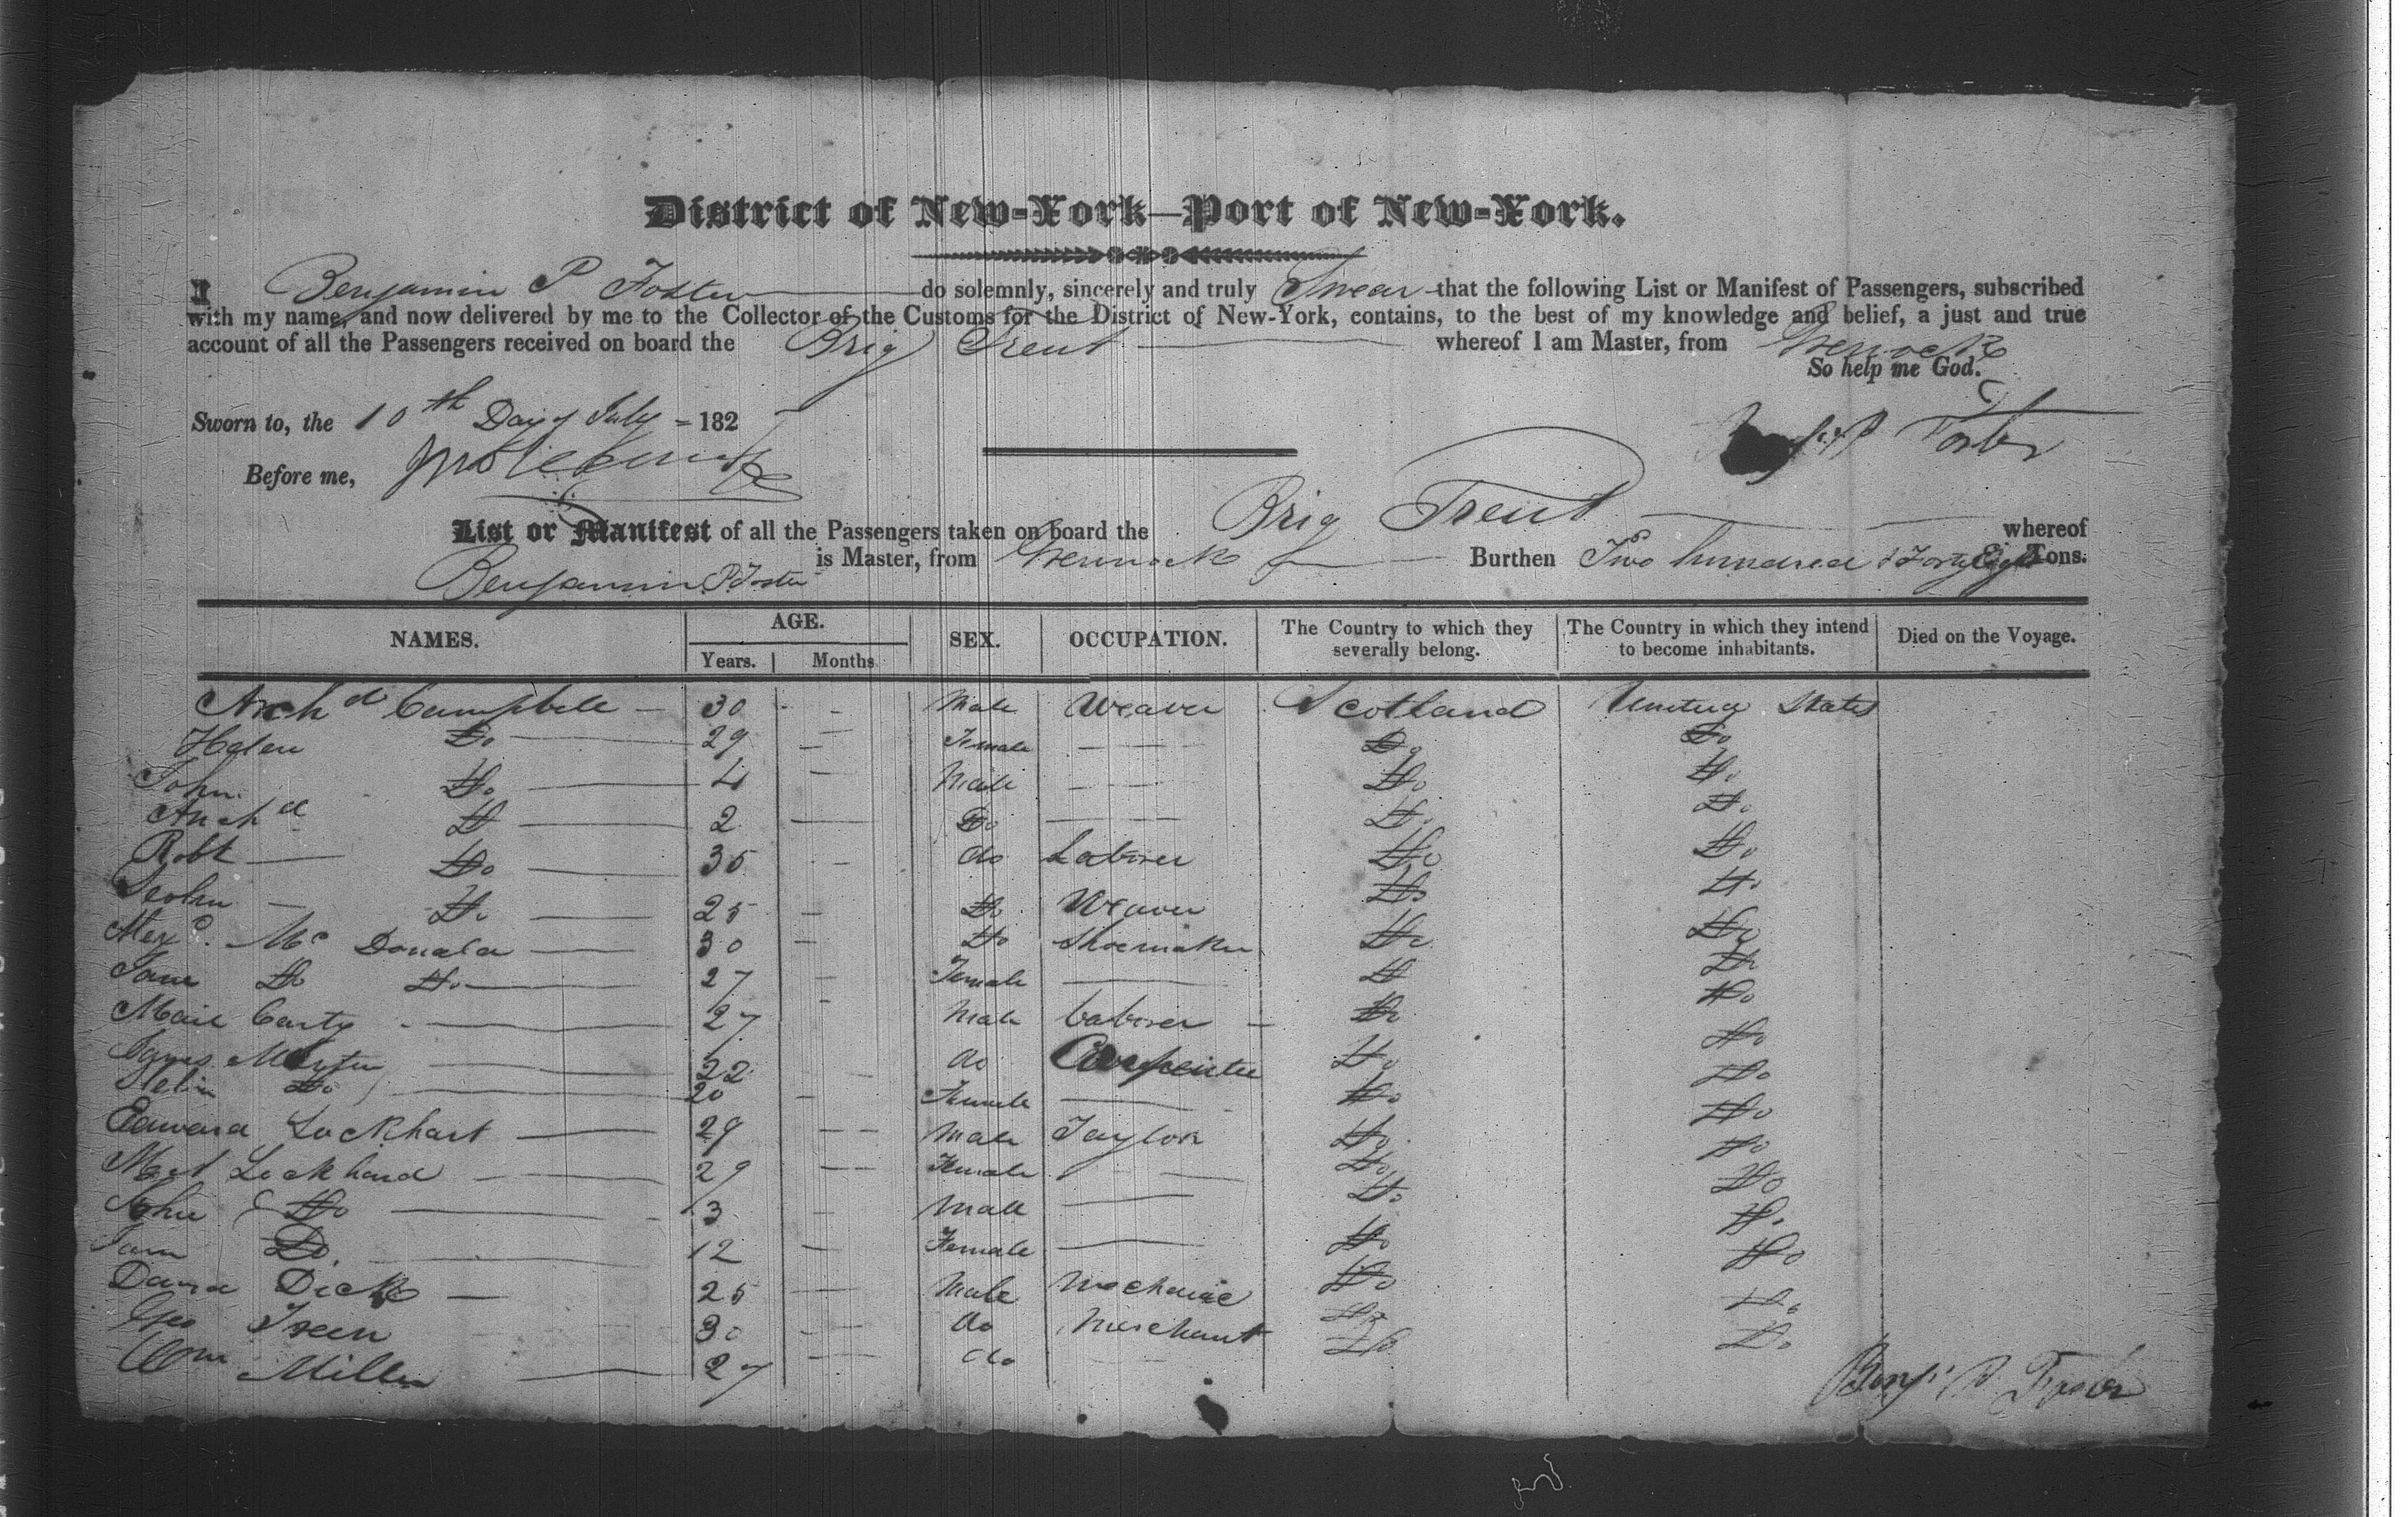 District of New-York—Port of New-York.
I Benjamin P Foster do solemnly, sincerely and truly Swear that the following List or Manifest of Passengers, subscribed
with my name, and now delivered by me to the Collector of the Customs for the District of New-York, contains, to the best of my knowledge and belief, a just and true
account of all the Passengers received on board the Brig Trent whereof I am Master, from Greenock
So help me God.
Sworn to, the 10th Day of July - 1827
Benj. P Foster
Before me,
List or Manifest of all the Passengers taken on board the Brig Trent whereof
Benjamin P Foster is Master, from Greenock Burthen Two hundred & Forty Eight Tons.
NAMES. AGE. SEX. OCCUPATION. The Country to which they severally belong. The Country in which they intend to become inhabitants. Died on the Voyage.
Years. Months
Archd Campbell 30 Male Weaver Scotland United States
Helen Do 29 Female Do Do
John Do 4 Male Do Do
Archd Do 2 Do Do Do
Robt Do 35 do Laborer Do Do
John Do 25 Do Weaver Do Do
Alexr. Mc Donald 30 Do Shoemaker Do Do
Jane Do Do 27 Female Do Do
Carty 27 Male Laborer Do Do
James 22 do Carpenter Do Do
Do 20 Female Do Do
Edward Lockhart 29 Male Taylor Do Do
Lockhard 29 Female Do Do
John Do 13 Male Do Do
Jane Do 12 Female Do Do
David Dick 25 Male Mechanic Do Do
Geo 30 do Merchant Do Do
Wm Miller 27 do Do Do
Benj. P Foster